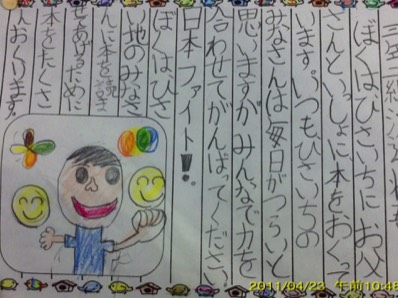 ぼくはひさいちにお父
さんといっしょに本をおくって
います。いつもひさいちの
みなさんは毎日がつらいと
思いますが みんなで力を
合わせてがんばってください。
日本ファイト!!
ぼくはひさ
い地のみなさ
んに本を読ま
せてあげるために
本をたくさ
んおくります。
2011/04/23 午前10:46